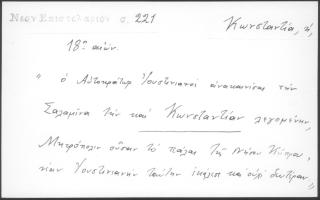 Νεον Επιστολαριον σ. 221
Κωνσταντία, ἡ,
18ος αιών.
" ὁ Αὐτοκράτωρ Ἰουστινιανὸς ἀνακαινίσας τὴν
Σαλαμῖνα τὴν καὶ Κωνσταντίαν λεγομένην,
Μητρόπολιν οὖσαν τὸ πάλαι τῆς Νήσου Κύπρου,
νέαν Ἰουστινιανὴν ταύτην ἐκάλεσε καὶ οὐχὶ δευτέραν "